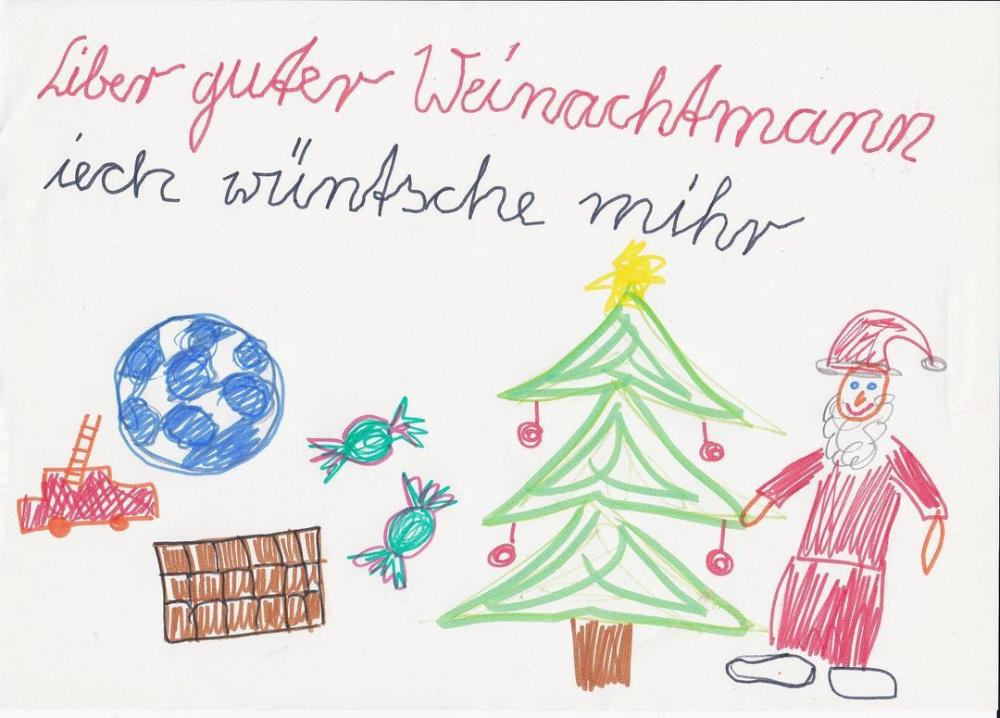 Liber guter Weinachtmann
iech wüntsche mihr